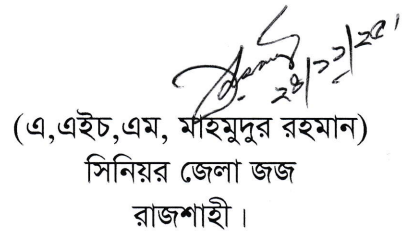 ২৪/১১/২৫।
(এ,এইচ,এম, মাহমুদুর রহমান)
সিনিয়র জেলা জজ
রাজশাহী।